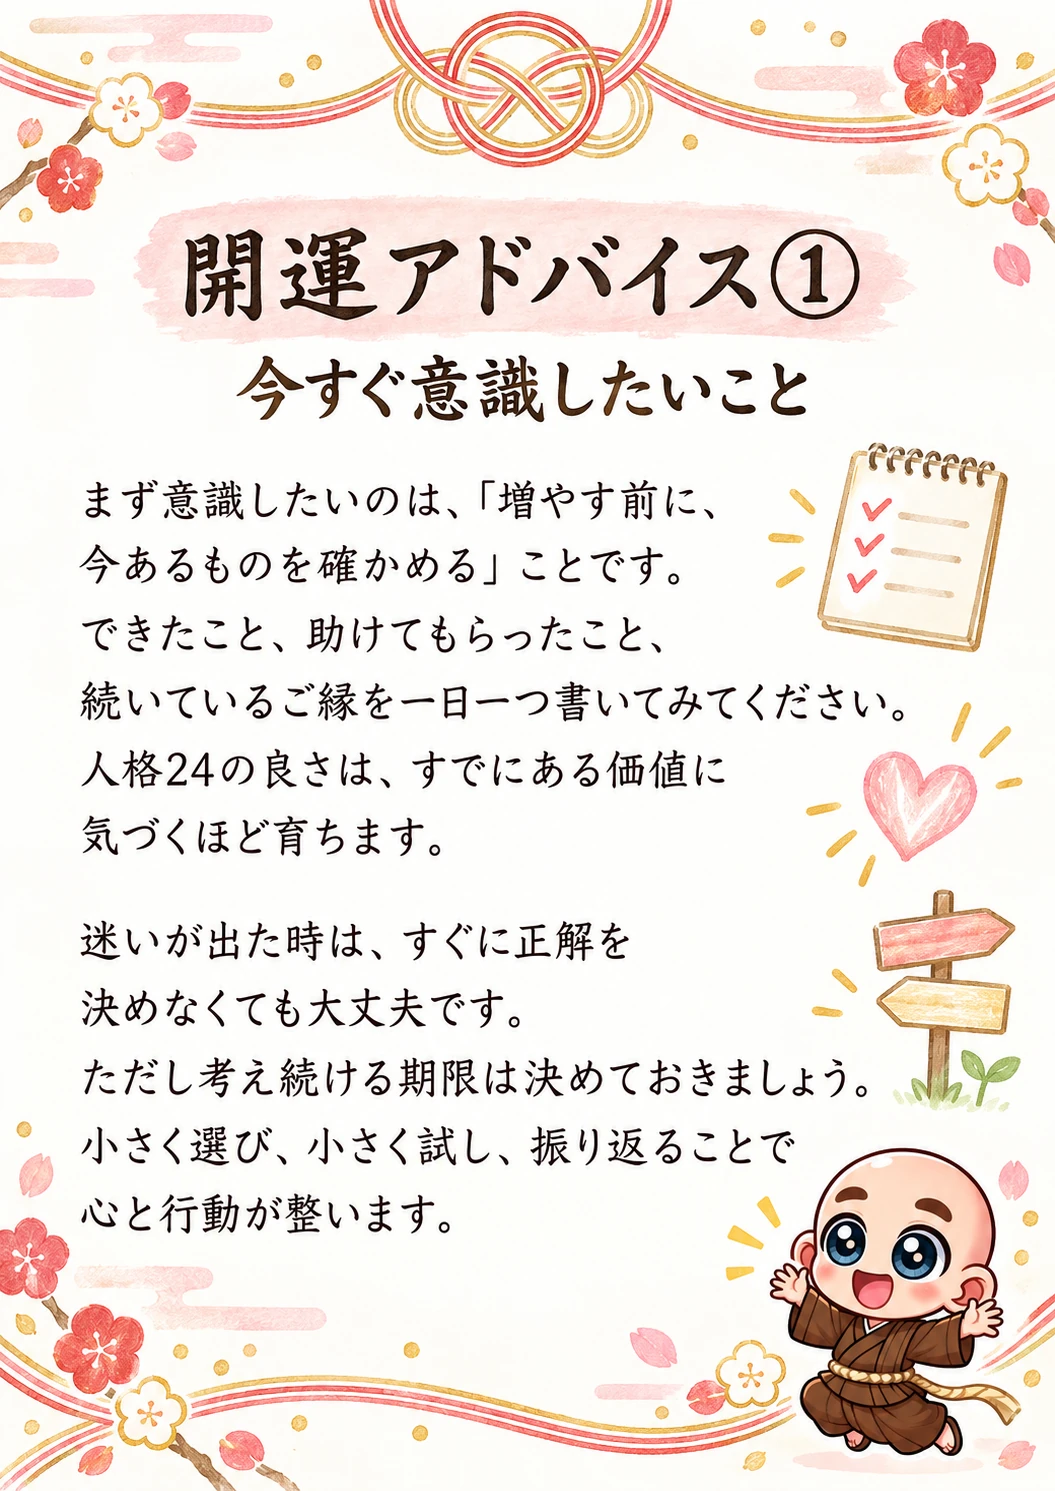 開運アドバイス①
今すぐ意識したいこと
まず意識したいのは、「増やす前に、
今あるものを確かめる」ことです。
できたこと、助けてもらったこと、
続いているご縁を一日一つ書いてみてください。
人格24の良さは、すでにある価値に
気づくほど育ちます。
迷いが出た時は、すぐに正解を
決めなくても大丈夫です。
ただし考え続ける期限は決めておきましょう。
小さく選び、小さく試し、振り返ることで
心と行動が整います。